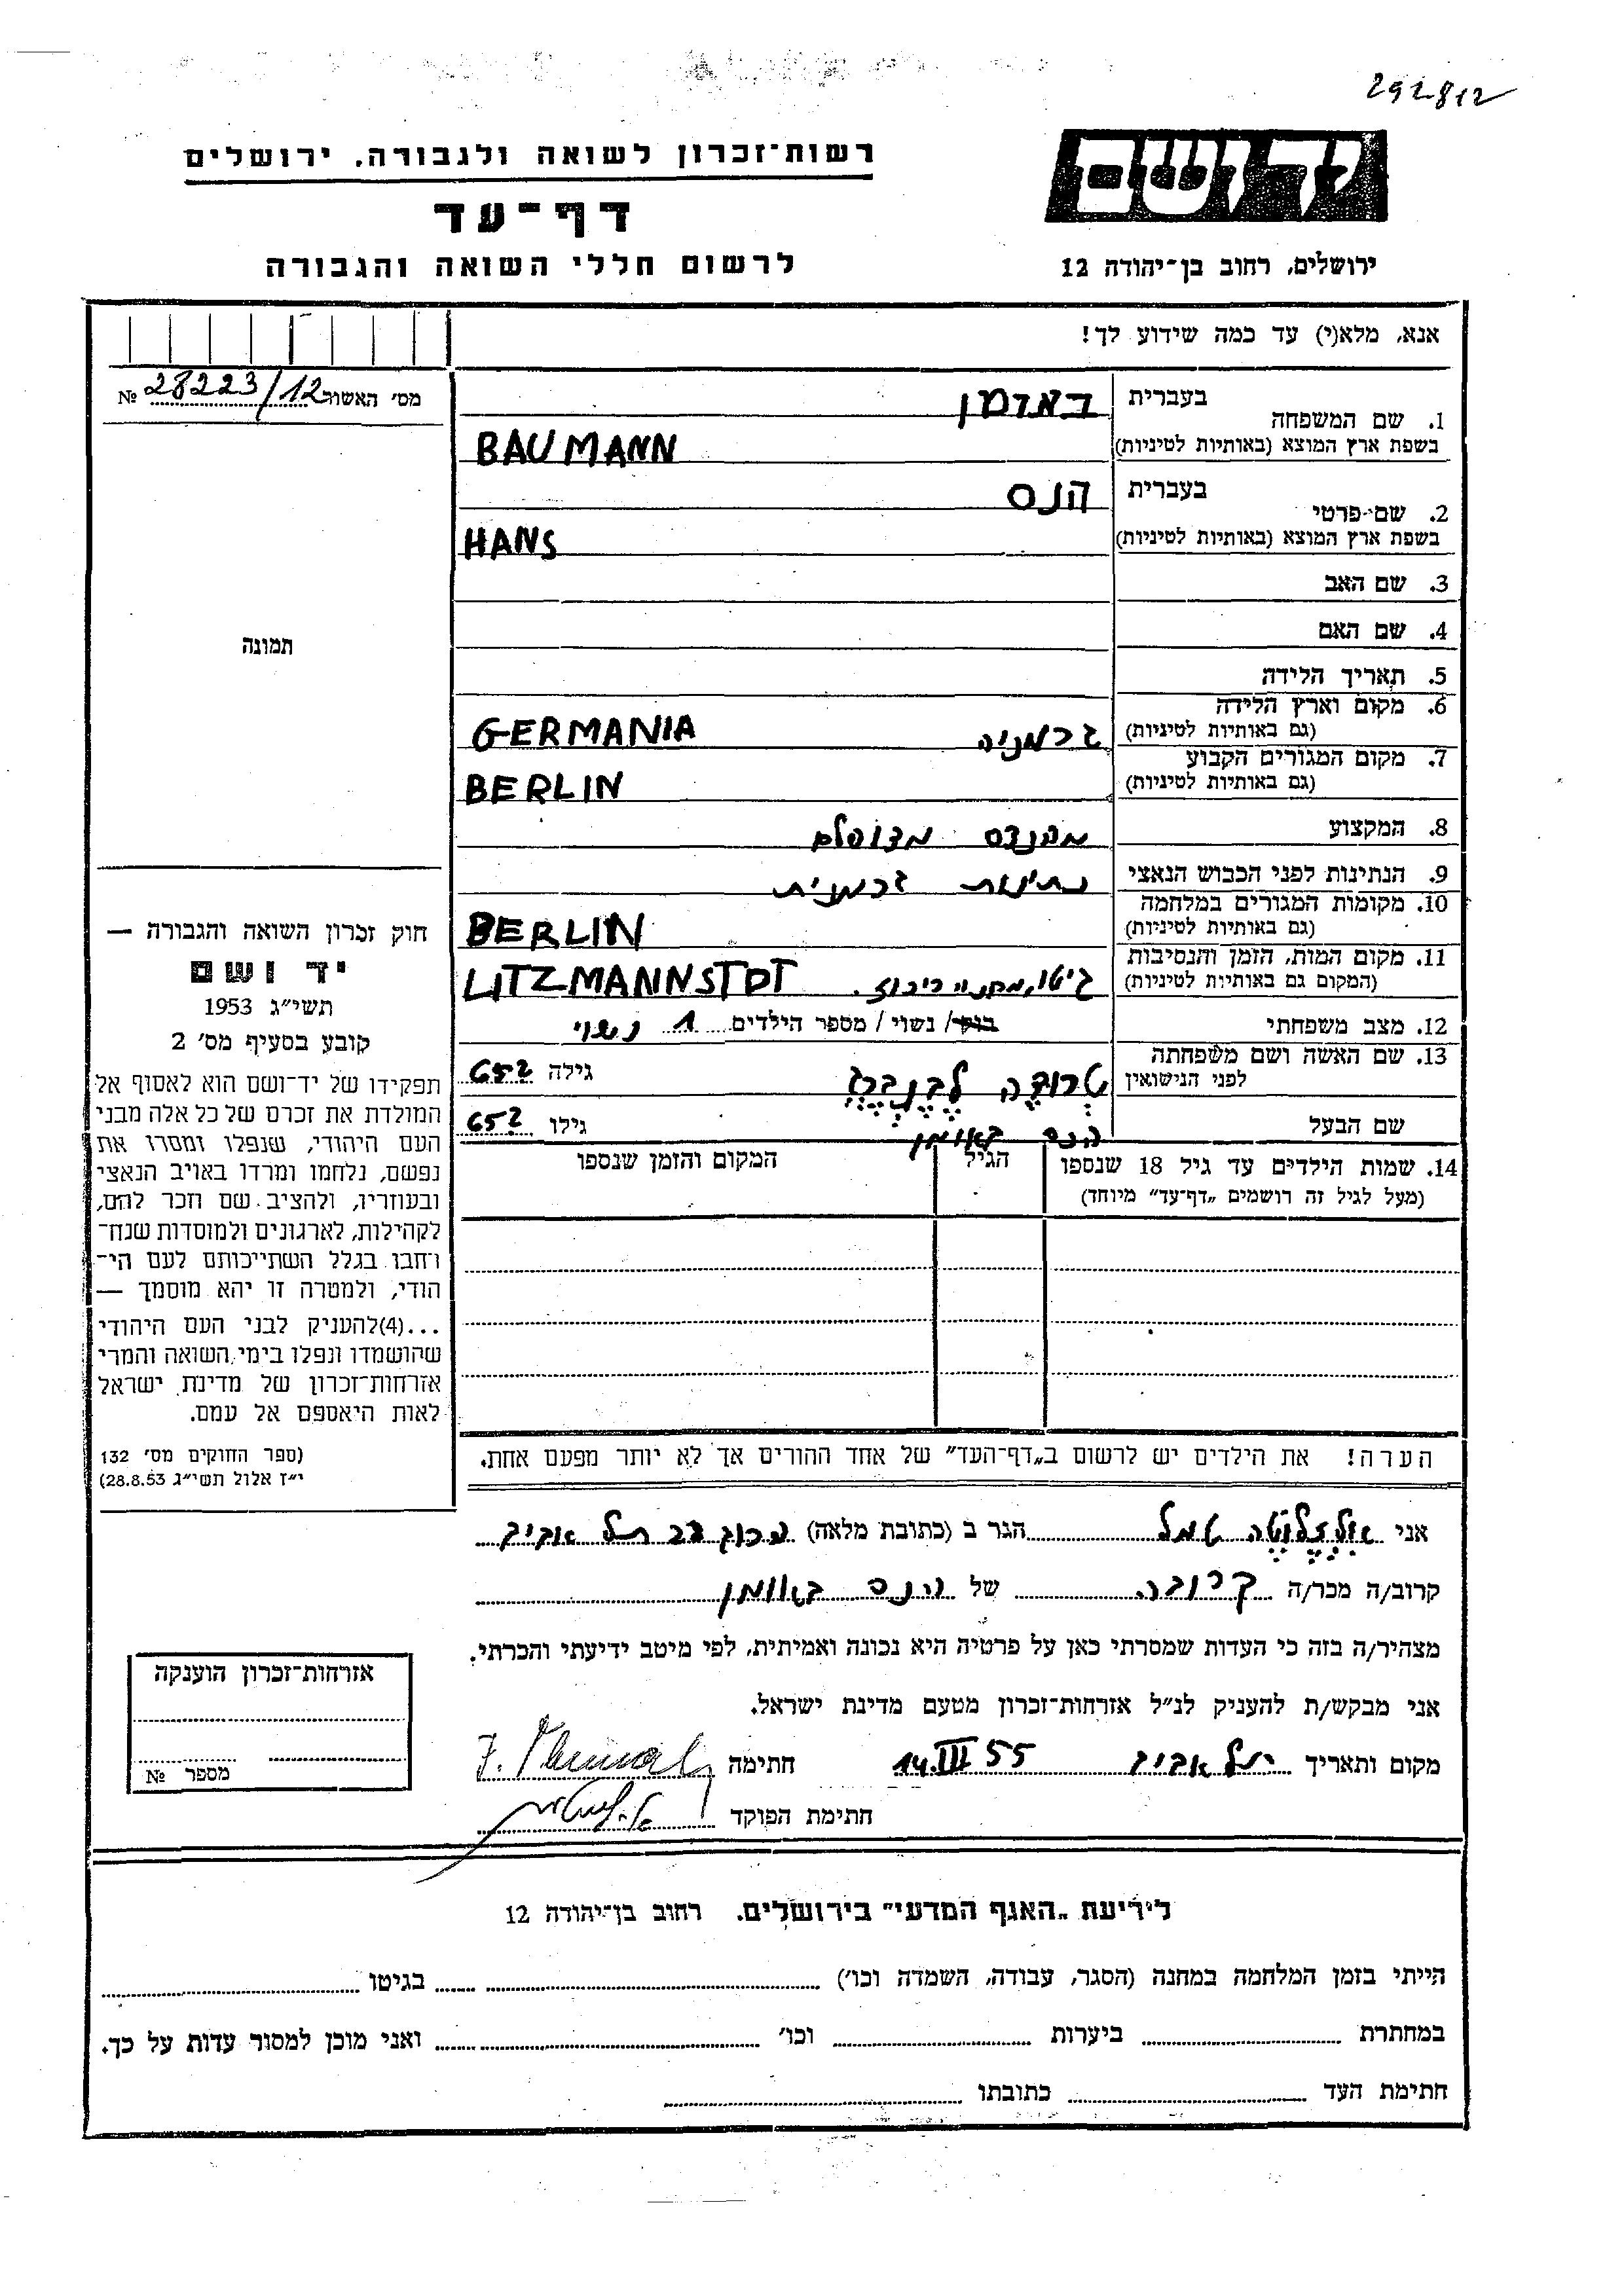 292812
יד ושם
רשות־זכרון לשואה ולגבורה, ירושלים
דף־עד
לרשום חללי השואה והגבורה
ירושלים, רחוב בן־יהודה 12
אנא, מלא(י) עד כמה שידוע לך!
מס׳ האשור 28223/12 №
1. שם המשפחה בעברית באומן
בשפת ארץ המוצא (באותיות לטיניות) BAUMANN
2. שם־פרטי בעברית הנס
בשפת ארץ המוצא (באותיות לטיניות) HANS
3. שם האב
4. שם האם
תמונה
5. תאריך הלידה
6. מקום וארץ הלידה (גם באותיות לטיניות) גרמניה GERMANIA
7. מקום המגורים הקבוע (גם באותיות לטיניות) BERLIN
8. המקצוע מהנדס
9. הנתינות לפני הכבוש הנאצי נתינות גרמנית
10. מקומות המגורים במלחמה (גם באותיות לטיניות) BERLIN
11. מקום המות, הזמן והנסיבות (המקום גם באותיות לטיניות) גיטו, מחנה ריכוז. LITZMANNSTDT
12. מצב משפחתי בוק/ נשוי / מספר הילדים 1 נשוי
13. שם האשה ושם משפחתה לפני הנישואין טרודה לבנברג גילה 65?
שם הבעל הנס באומן גילו 65?
14. שמות הילדים עד גיל 18 שנספו (מעל לגיל זה רושמים „דף־עד״ מיוחד) הגיל המקום והזמן שנספו
חוק זכרון השואה והגבורה —
יד ושם
תשי״ג 1953
קובע בסעיף מס׳ 2
תפקידו של יד־ושם הוא לאסוף אל
המולדת את זכרם של כל אלה מבני
העם היהודי, שנפלו ומסרו את
נפשם, נלחמו ומרדו באויב הנאצי
ובעוזריו, ולהציב שם וזכר להם,
לקהילות, לארגונים ולמוסדות שנח־
רחבו בגלל השתייכותם לעם הי־
הודי, ולמטרה זו יהא מוסמך —
...(4)להעניק לבני העם היהודי
שהושמדו ונפלו בימי השואה והמרי
אזרחות־זכרון של מדינת ישראל
לאות היאספם אל עמם.
(ספר החוקים מס׳ 132
י״ז אלול תשי״ג 28.8.53)
הערה! את הילדים יש לרשום ב„דף־העד״ של אחד ההורים אך לא יותר מפעם אחת.
אני אילזלוטה הגר ב (כתובת מלאה) תל אביב
קרוב/ה מכר/ה קרובה של הנס באומן
מצהיר/ה בזה כי העדות שמסרתי כאן על פרטיה היא נכונה ואמיתית, לפי מיטב ידיעתי והכרתי.
אני מבקש/ת להעניק לנ״ל אזרחות־זכרון מטעם מדינת ישראל.
מקום ותאריך תל אביב 14.III 55 חתימה
חתימת הפוקד
אזרחות־זכרון הוענקה
מספר №
לידיעת „האגף המדעי״ בירושלים. רחוב בן־יהודה 12
הייתי בזמן המלחמה במחנה (הסגר, עבודה, השמדה וכו׳) בגיטו
במחתרת ביערות וכו׳ ואני מוכן למסור עדות על כך.
חתימת העד כתובתו